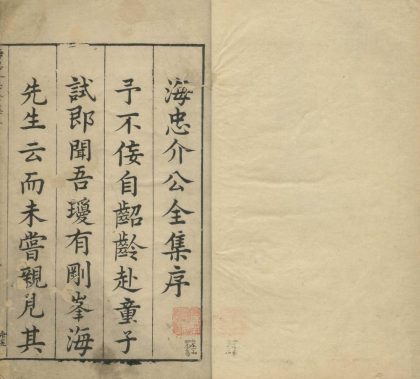 海忠介公全集序
予不佞自齠齡赴童子
試即聞吾瓊有剛峯海
先生云而未嘗親見其